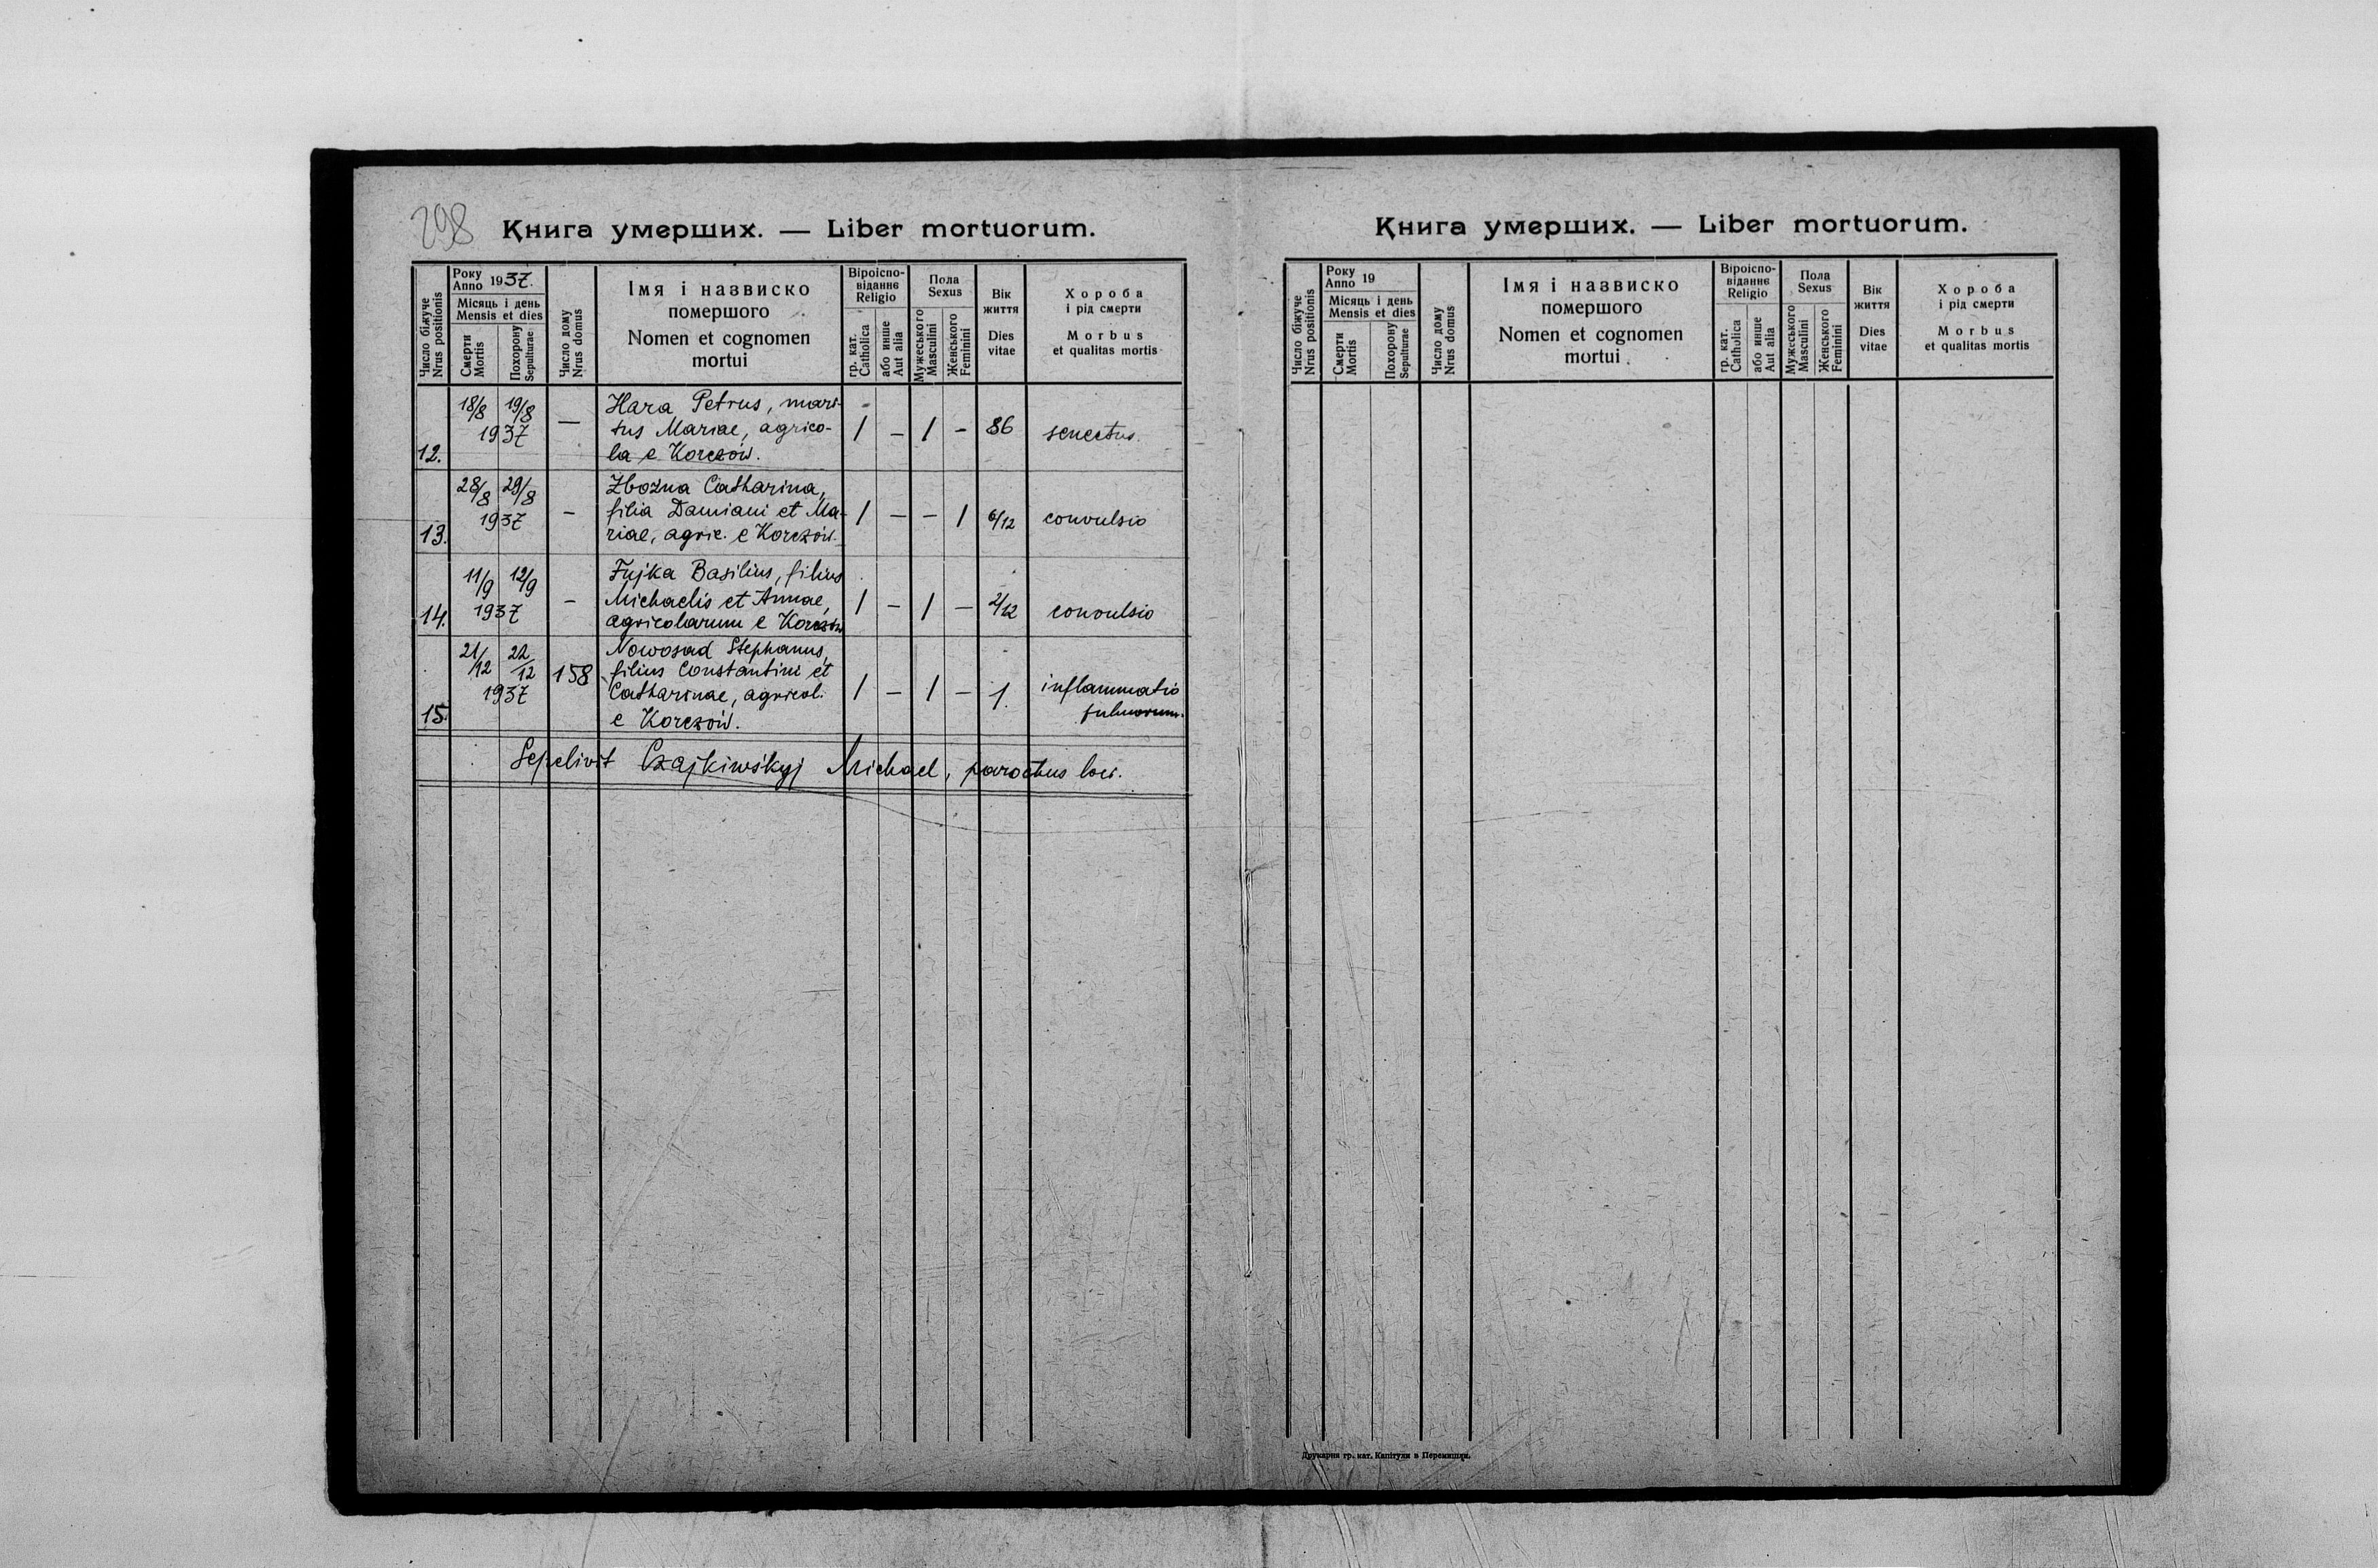 298
Книга умерших. — Liber mortuorum.
Число біжуче
Nrus positionis
Року
Anno 1937.
Місяць і день
Mensis et dies
Смерти
Mortis
Похорону
Sepulturae
Число дому
Nrus domus
Імя і назвиско
помершого
Nomen et cognomen
mortui
Віроіспо-
віданнє
Religio
гр. кат.
Catholica
або инше
Aut alia
Пола
Sexus
Мужеського
Masculini
Женського
Feminini
Вік
життя
Dies
vitae
Хороба
і рід смерти
Morbus
et qualitas mortis
18/8 19/8 Hara Petrus, mari-
1937 — tus Mariae, agrico- 1 — 1 - 86 senectus.
12. la e Korczów.
28/8 29/8 Zbozna Catharina,
1937 — filia Damiani et Ma- 1 — — 1 6/12 convulsio
13. riae, agric. e Korczów.
11/9 12/9 Fujka Basilius, filius
1937 — Michaelis et Annae, 1 — 1 — 2/12 convulsio
14. agricolarum e Korczów
21/12 22/12 Nowosad Stephanus,
158 filius Constantini et
1937 Catharinae, agricol. 1 — 1 — 1. inflammatio
15. e Korczów. pulmorum.
Sepelivit Czajkiwśkyj Michael, parochus loci.
Книга умерших. — Liber mortuorum.
Число біжуче
Nrus positionis
Року
Anno 19
Місяць і день
Mensis et dies
Смерти
Mortis
Похорону
Sepulturae
Число дому
Nrus domus
Імя і назвиско
помершого
Nomen et cognomen
mortui
Віроіспо-
віданнє
Religio
гр. кат.
Catholica
або инше
Aut alia
Пола
Sexus
Мужеського
Masculini
Женського
Feminini
Вік
життя
Dies
vitae
Хороба
і рід смерти
Morbus
et qualitas mortis
Друкарня гр. кат. Капітули в Перемишли.